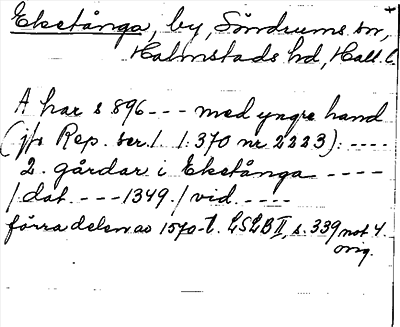 Eketånga, by, Söndrums sn,
Halmstads hd, Hall. l.
A har s 896 --- med yngre hand
(jfr Rep. ser. 1. 1: 370 nr 2223): ----
2. gårdar i Eketånga ----
/dat. ---- 1349./ vid. -----
förra delen av 1570-t. LSLB II, s. 339 not 4.
orig.